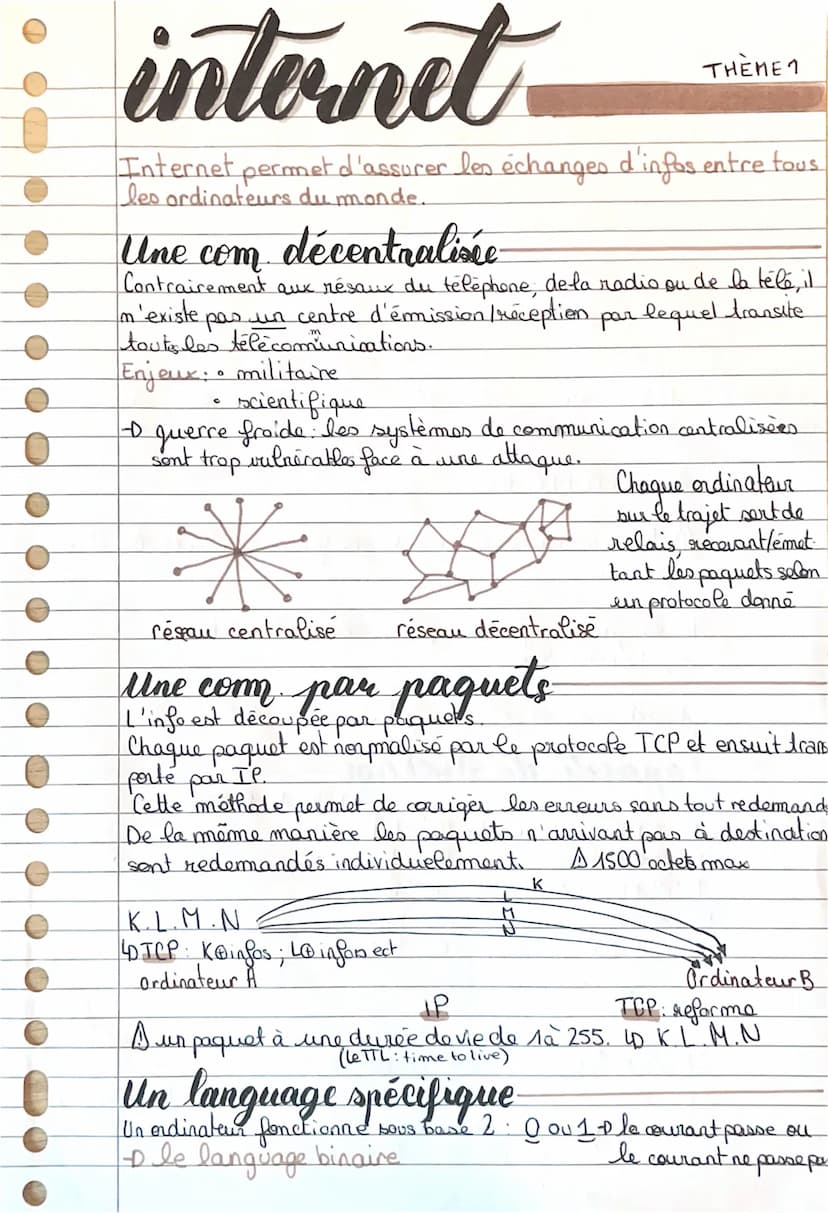 internet
THÈME 1
Internet permet d'assurer les échanges d'infos entre tous
les ordinateurs du monde.
Une com. décentralisée
Contrairement aux résaux du téléphone, de la radio ou de la télé, il
n'existe pas un centre d'émission/réception par lequel transite
toutes les télécommunications.
Enjeux : • militaire
• scientifique
→ guerre froide : les systèmes de communication centralisées
sont trop vulnérables face à une attaque.
Chaque ordinateur
sur le trajet sert de
relais, recevant/émet-
tant les paquets selon
un protocole donné
réseau centralisé
réseau décentralisé
Une comm. par paquets
L'info est découpée par paquets.
Chaque paquet est normalisé par le protocole TCP et ensuit trans
porté par IP.
Cette méthode permet de corriger les erreurs sans tout redemand
De la même manière les paquets n'arrivant pas à destination
sont redemandés individuelement. ⚠ 1500 octets max
K
L
M
N
K.L.M.N
↳ TCP : K⊕infos ; L⊕infos ect
ordinateur A
Ordinateur B
IP
TCP : reforme
⚠ un paquet à une durée de vie de 1 à 255. ↳ K.L.M.N
(le TTL : time to live)
Un language spécifique
Un ordinateur fonctionne sous base 2 : 0 ou 1 → le courant passe ou
→ le language binaire
le courant ne passe pa